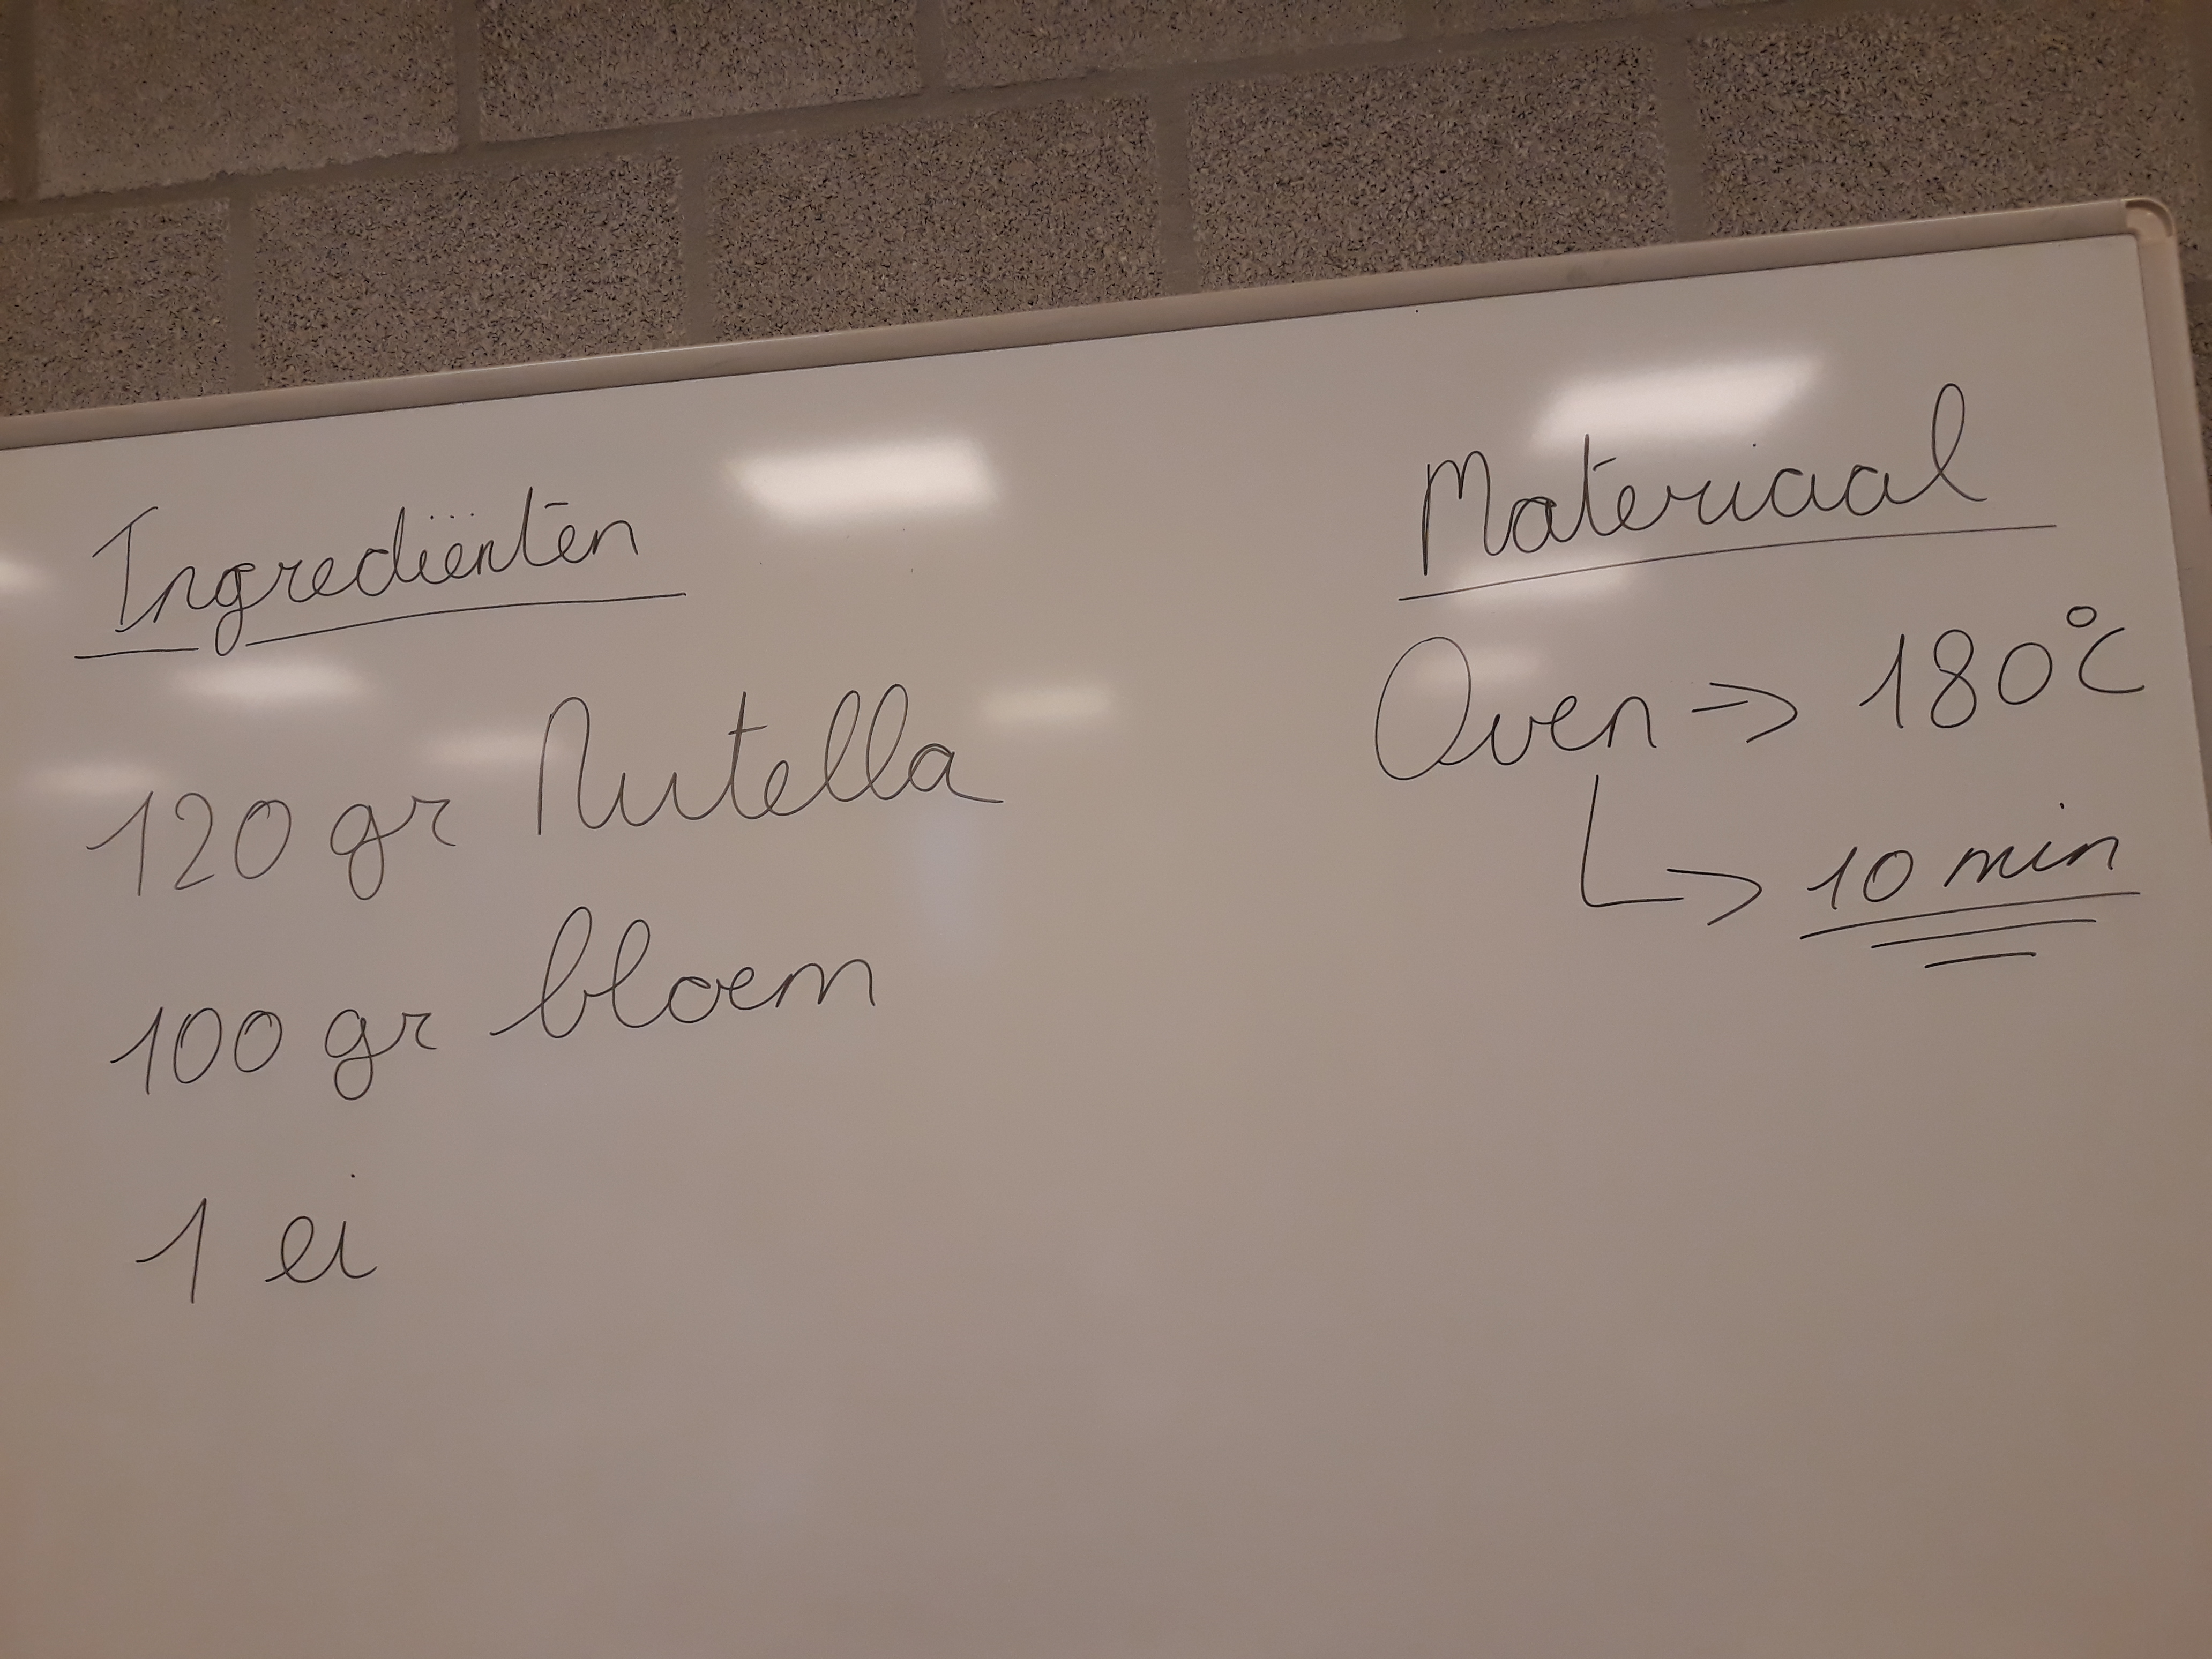 Ingrediënten
120 gr Nutella
100 gr bloem
1 ei
Materiaal
Oven => 180°C
↳> 10 min